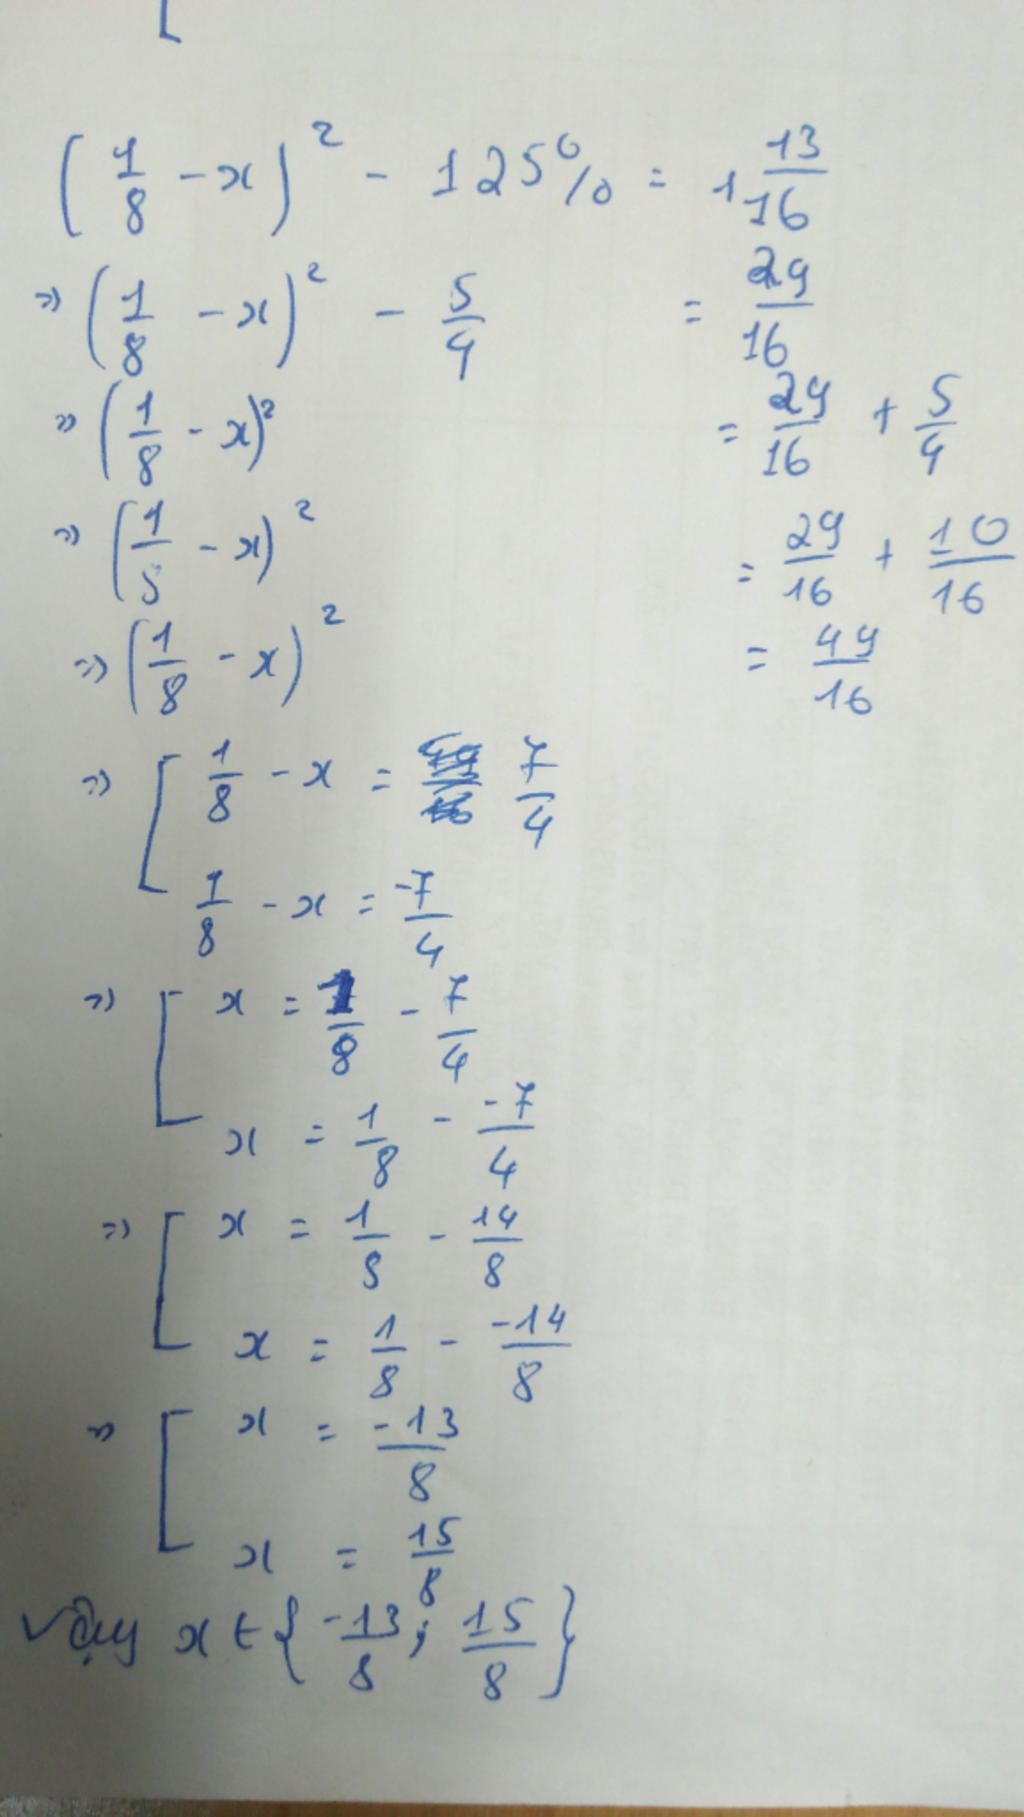 (1/8 - x)² - 125% = 1 13/16
=> (1/8 - x)² - 5/4 = 29/16
=> (1/8 - x)² = 29/16 + 5/4
=> (1/5 - x)² = 29/16 + 10/16
=> (1/8 - x)² = 49/16
=> [ 1/8 - x = 7/4
1/8 - x = -7/4
=> [ x = 1/8 - 7/4
x = 1/8 - -7/4
=> [ x = 1/8 - 14/8
x = 1/8 - -14/8
=> [ x = -13/8
x = 15/8
Vậy x ∈ { -13/8 ; 15/8 }